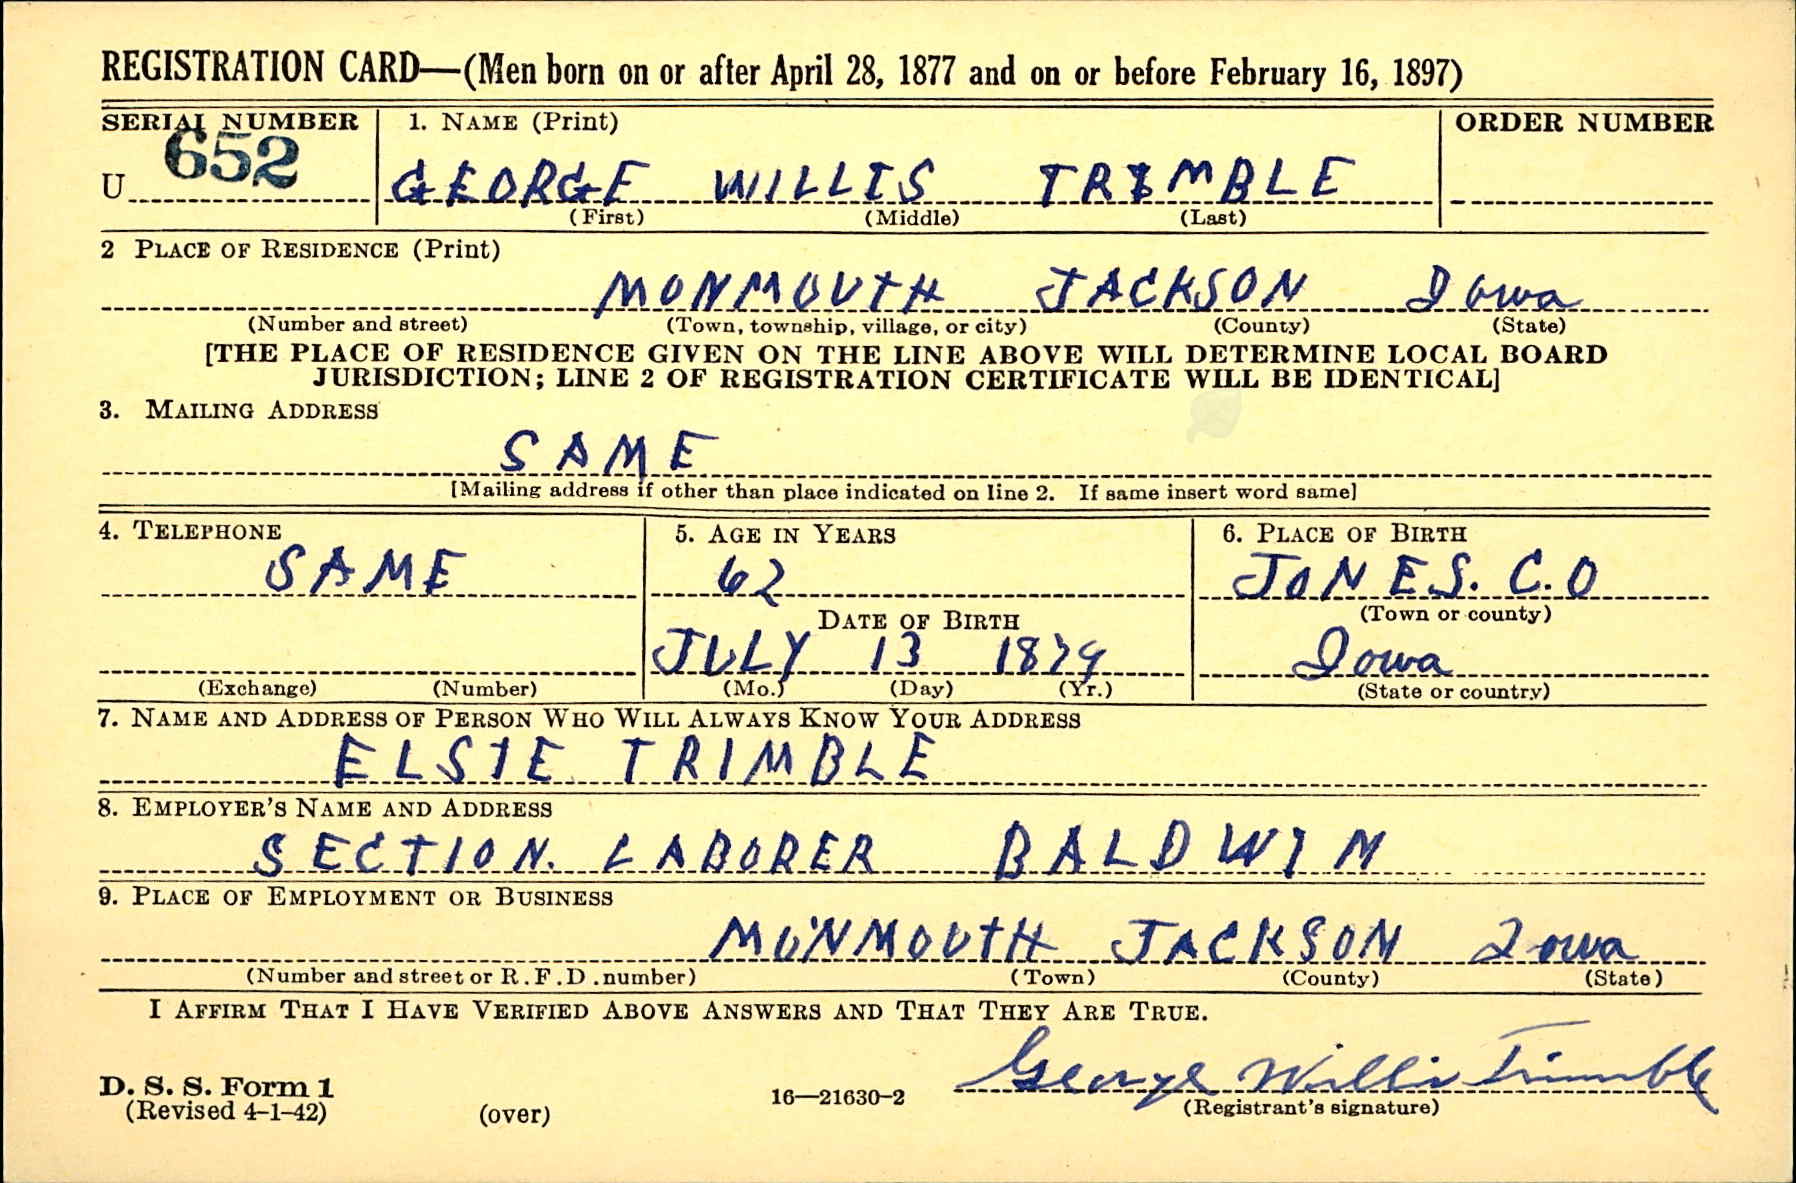 REGISTRATION CARD—(Men born on or after April 28, 1877 and on or before February 16, 1897)
SERIAL NUMBER 1. NAME (Print) ORDER NUMBER
U 652 GEORGE WILLIS TRIMBLE
(First) (Middle) (Last)
2 PLACE OF RESIDENCE (Print)
MONMOUTH JACKSON Iowa
(Number and street) (Town, township, village, or city) (County) (State)
[THE PLACE OF RESIDENCE GIVEN ON THE LINE ABOVE WILL DETERMINE LOCAL BOARD
JURISDICTION; LINE 2 OF REGISTRATION CERTIFICATE WILL BE IDENTICAL]
3. MAILING ADDRESS
SAME
[Mailing address if other than place indicated on line 2. If same insert word same]
4. TELEPHONE 5. AGE IN YEARS 6. PLACE OF BIRTH
SAME 62 JONES. C.O
DATE OF BIRTH (Town or county)
JULY 13 1879 Iowa
(Exchange) (Number) (Mo.) (Day) (Yr.) (State or country)
7. NAME AND ADDRESS OF PERSON WHO WILL ALWAYS KNOW YOUR ADDRESS
ELSIE TRIMBLE
8. EMPLOYER'S NAME AND ADDRESS
SECTION. LABORER BALDWIN
9. PLACE OF EMPLOYMENT OR BUSINESS
MONMOUTH JACKSON Iowa
(Number and street or R.F.D. number) (Town) (County) (State)
I AFFIRM THAT I HAVE VERIFIED ABOVE ANSWERS AND THAT THEY ARE TRUE.
George Willis Trimble
D. S. S. Form 1
(Revised 4-1-42) (over) 16—21630-2 (Registrant's signature)